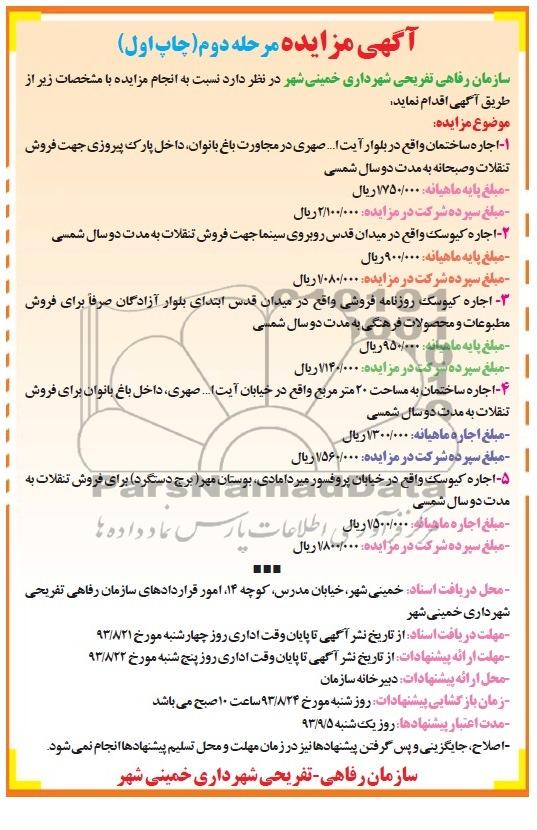 آگهی مزایده مرحله دوم (چاپ اول)
سازمان رفاهی تفریحی شهرداری خمینی‌شهر در نظر دارد نسبت به انجام مزایده با مشخصات زیر از
طریق آگهی اقدام نماید:
موضوع مزایده:
۱-اجاره ساختمان واقع در بلوار آیت ا... صهری در مجاورت باغ بانوان، داخل پارک پیروزی جهت فروش
تنقلات و صبحانه به مدت دو سال شمسی
-مبلغ پایه ماهیانه: ۱/۷۵۰/۰۰۰ ریال
-مبلغ سپرده شرکت در مزایده: ۲/۱۰۰/۰۰۰ ریال
۲-اجاره کیوسک واقع در میدان قدس روبروی سینما جهت فروش تنقلات به مدت دو سال شمسی
-مبلغ پایه ماهیانه: ۹۰۰/۰۰۰ ریال
-مبلغ سپرده شرکت در مزایده: ۱/۰۸۰/۰۰۰ ریال
۳- اجاره کیوسک روزنامه فروشی واقع در میدان قدس ابتدای بلوار آزادگان صرفاً برای فروش
مطبوعات و محصولات فرهنگی به مدت دو سال شمسی
-مبلغ پایه ماهیانه: ۹۵۰/۰۰۰ ریال
-مبلغ سپرده شرکت در مزایده: ۱/۱۴۰/۰۰۰ ریال
۴-اجاره ساختمان به مساحت ۲۰ متر مربع واقع در خیابان آیت ا... صهری، داخل باغ بانوان برای فروش
تنقلات به مدت دو سال شمسی
-مبلغ اجاره ماهیانه: ۱/۳۰۰/۰۰۰ ریال
-مبلغ سپرده شرکت در مزایده: ۱/۵۶۰/۰۰۰ ریال
۵-اجاره کیوسک واقع در خیابان پروفسور میردامادی، بوستان مهر( برج دستگرد) برای فروش تنقلات به
مدت دو سال شمسی
-مبلغ اجاره ماهیانه: ۱/۵۰۰/۰۰۰ ریال
-مبلغ سپرده شرکت در مزایده: ۱/۸۰۰/۰۰۰ ریال
ParsNamadData
مرکز فرآوری اطلاعات پارس نماد داده ها
-محل دریافت اسناد: خمینی شهر، خیابان مدرس، کوچه ۱۴، امور قراردادهای سازمان رفاهی تفریحی
شهرداری خمینی شهر
-مهلت دریافت اسناد: از تاریخ نشر آگهی تا پایان وقت اداری روز چهارشنبه مورخ ۹۳/۸/۲۱
-مهلت ارائه پیشنهادات: از تاریخ نشر آگهی تا پایان وقت اداری روز پنج شنبه مورخ ۹۳/۸/۲۲
-محل ارائه پیشنهادات: دبیرخانه سازمان
-زمان بازگشایی پیشنهادات: روز شنبه مورخ ۹۳/۸/۲۴ ساعت ۱۰ صبح می باشد
-مدت اعتبار پیشنهادها: روز یک شنبه ۹۳/۹/۵
-اصلاح، جایگزینی و پس گرفتن پیشنهادها نیز در زمان مهلت و محل تسلیم پیشنهادها انجام نمی‌شود.
سازمان رفاهی-تفریحی شهرداری خمینی شهر